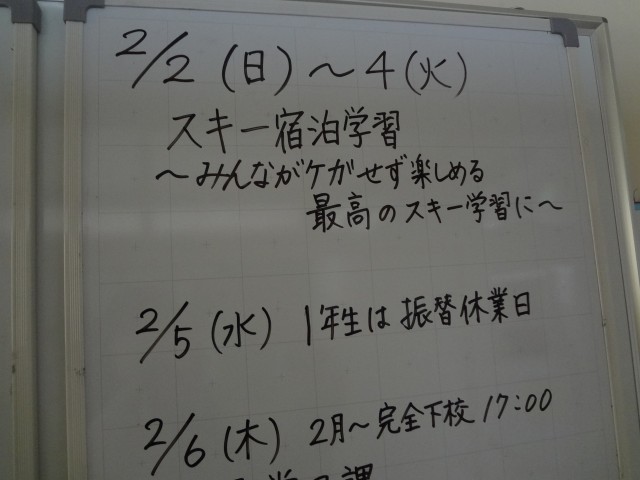 2/2(日)～4(火)
スキー宿泊学習
～みんながケガせず楽しめる
最高のスキー学習に～
2/5(水) 1年生は振替休業日
2/6(木) 2月～完全下校17:00